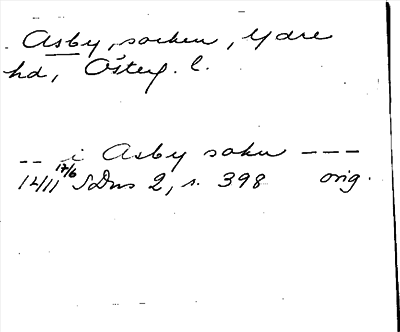 Asby, socken, Ydre
hd, Österg. l.
-- i Asby sokn ---
1411 17/6 SDns 2, s. 398 orig.